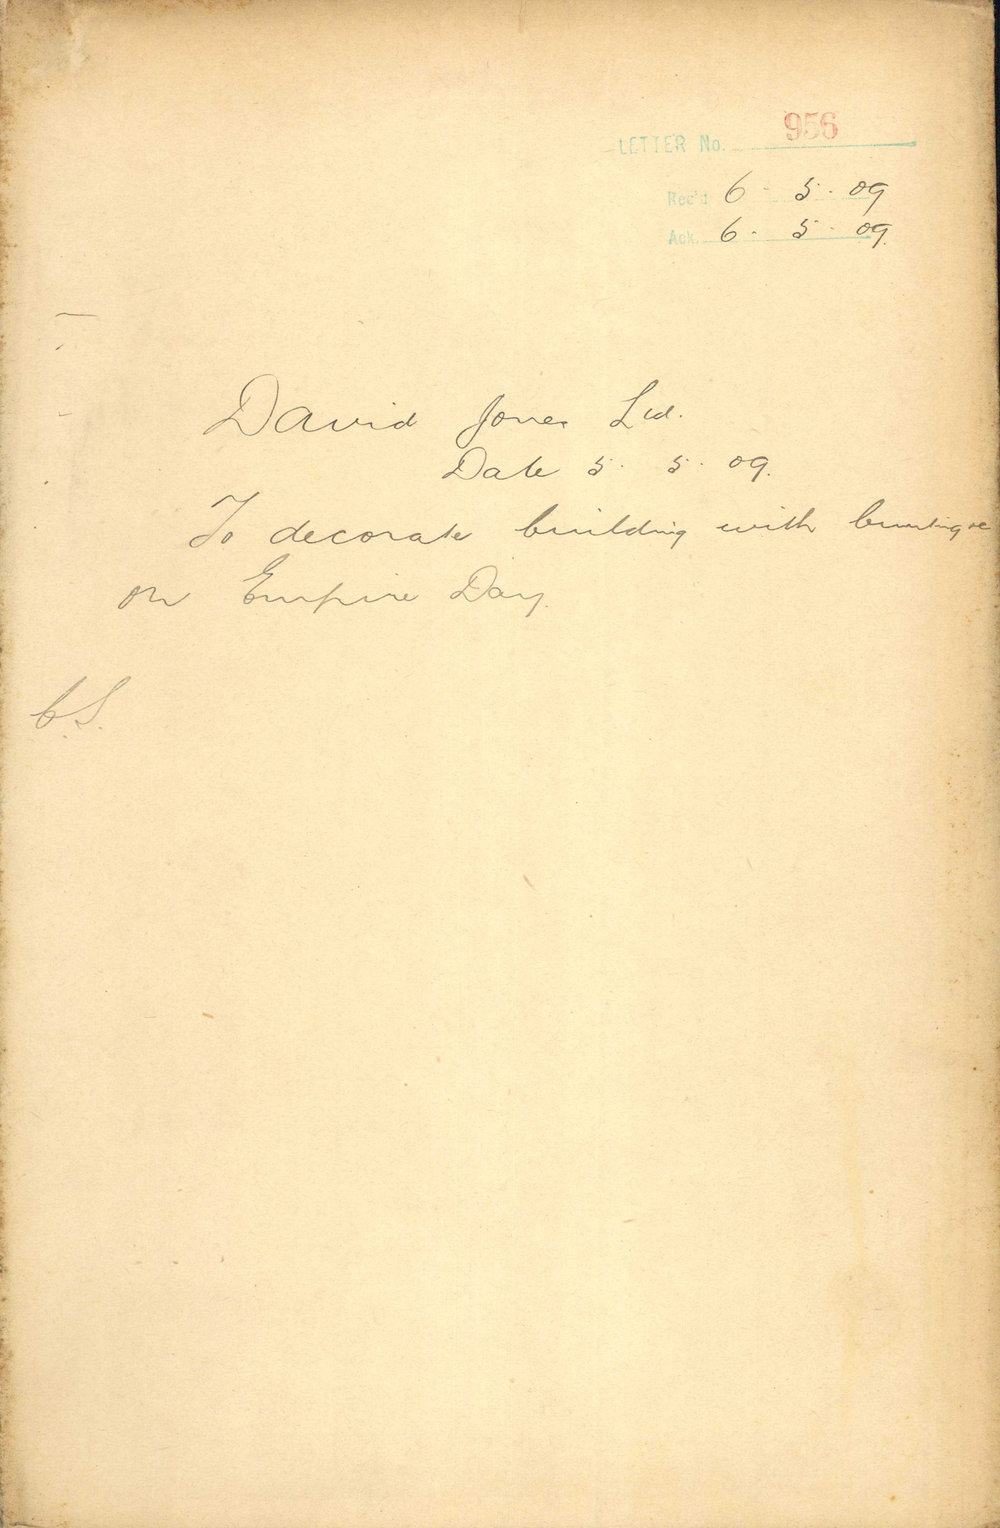 LETTER No. 956
Rec'd 6 . 5 . 09
Ack. 6 . 5 . 09.
David Jones Ltd.
Date 5 . 5 . 09.
To decorate building with bunting &c
on Empire Day.
C.S.